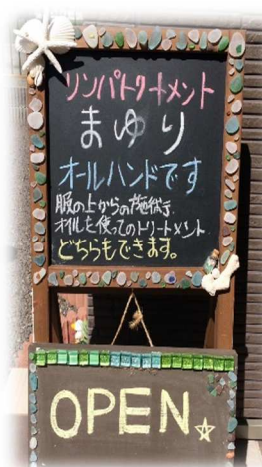 リンパトリートメント
まゆり
オールハンドです
服の上からの施術
オイルを使ってのトリートメント
どちらもできます。
OPEN